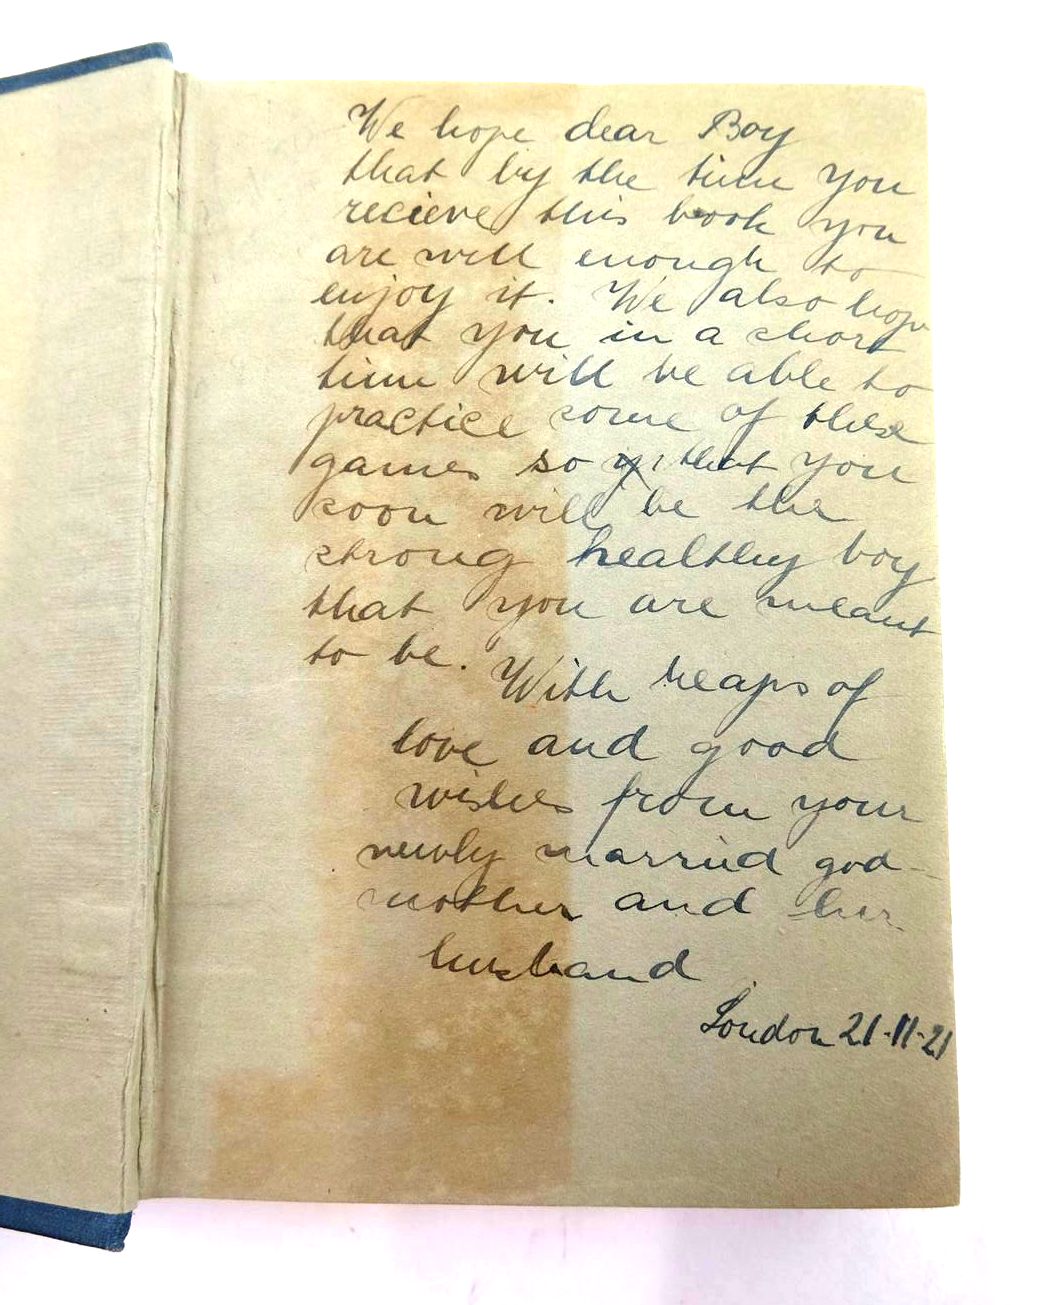 We hope dear Boy
that by the time you
recieve this book you
are well enough to
enjoy it. We also hope
that you in a short
time will be able to
practice some of these
games so that you
soon will be the
strong healthy boy
that you are meant
to be.
With heaps of
love and good
wishes from your
newly married god-
mother and her
husband
London 21-11-21